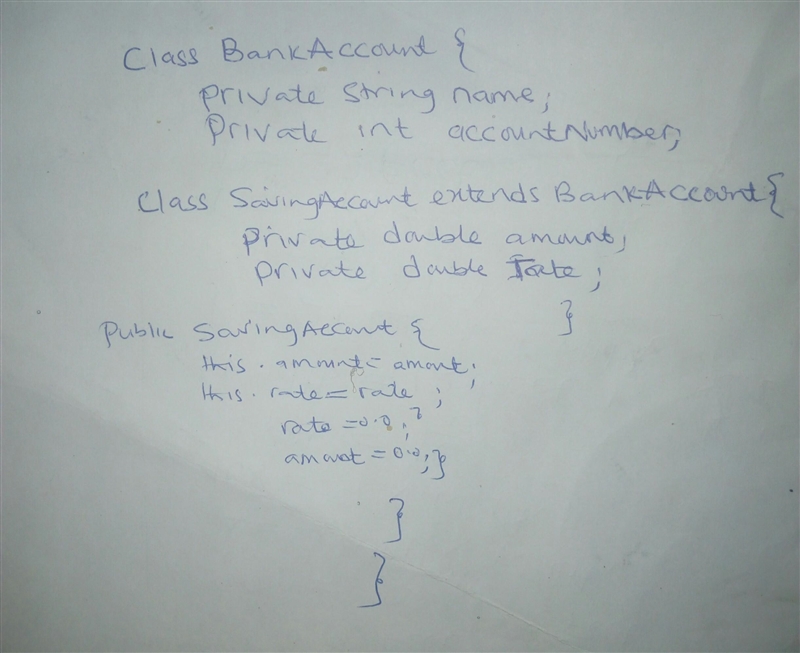 Class BankAccount {
private String name;
Private int accountNumber;
Class SavingAccount extends BankAccount{
private double amount;
private double rate;
}
Public SavingAccount {
this.amount= amont;
this.rate= rate ;
rate =0.0;
amount =0.0;}
}
}